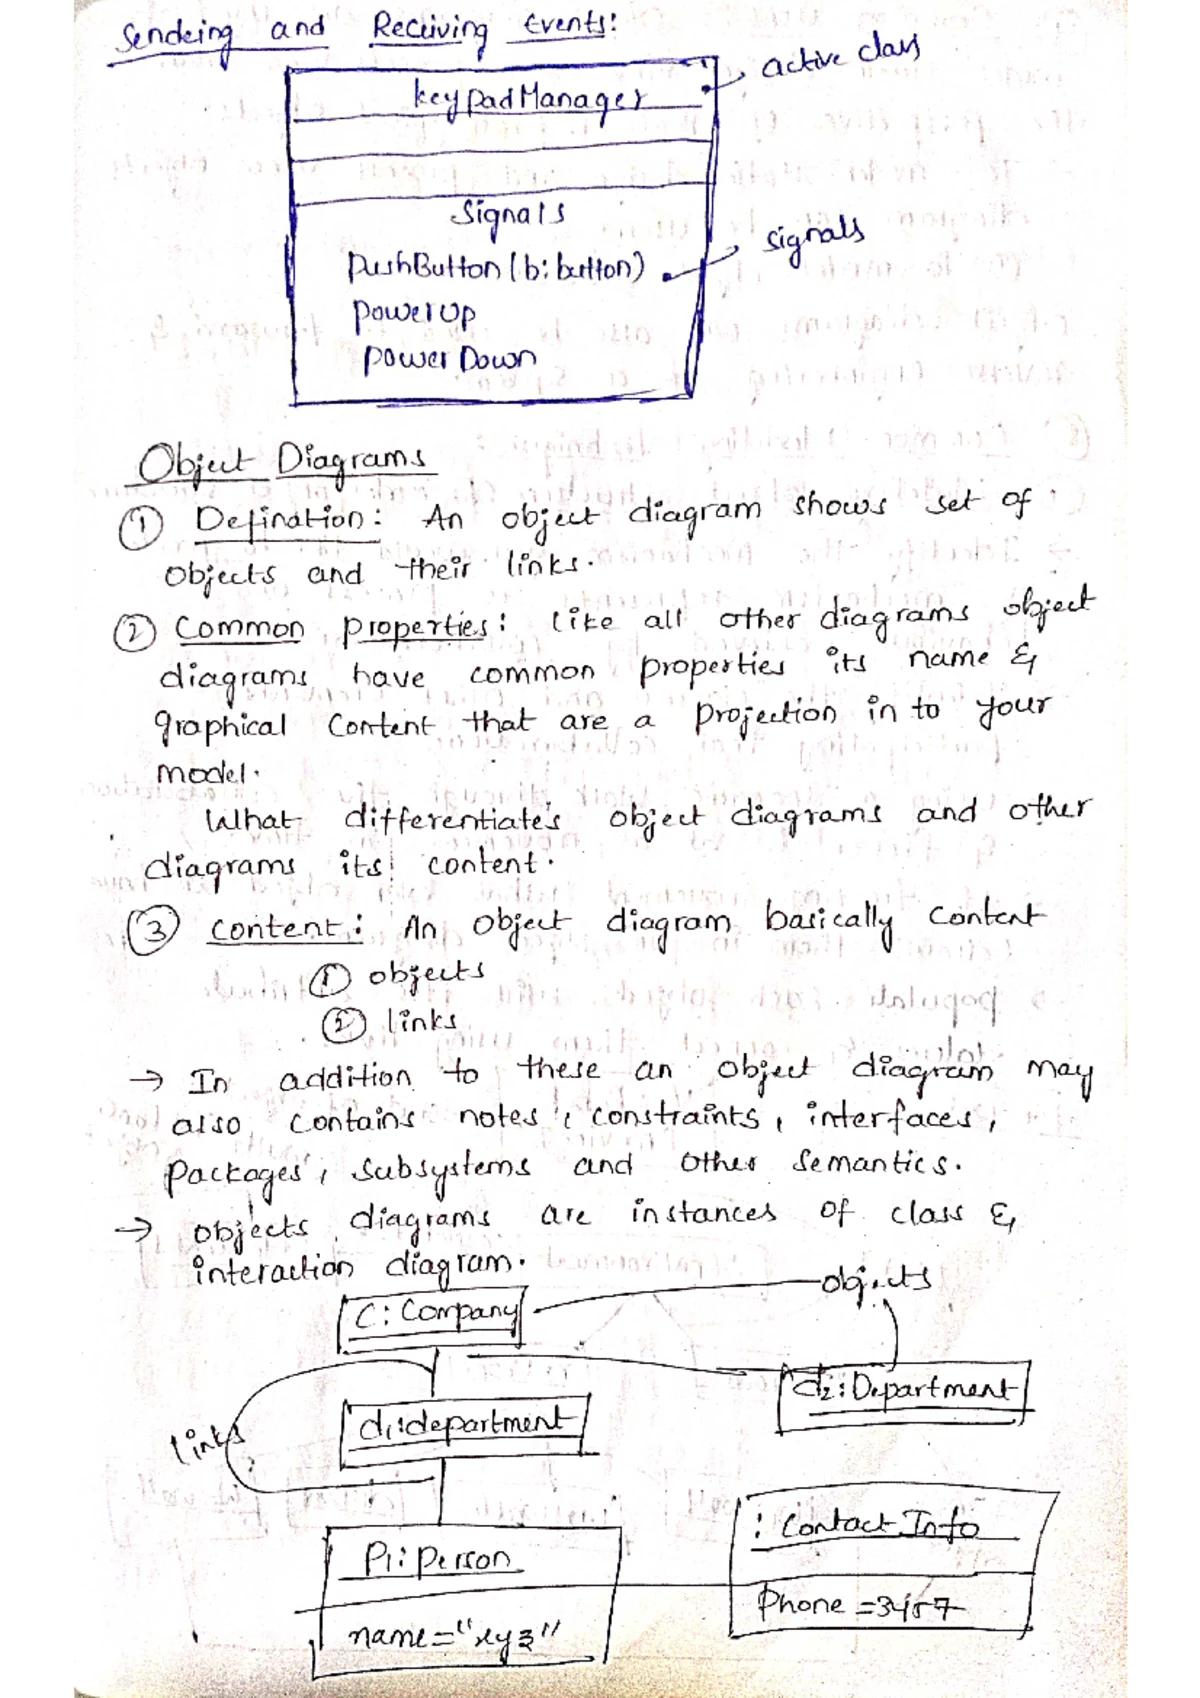 Sendeing and Receiving Events:
active class
keypadManager
Signals
signals
pushButton (b: button)
powerUp
power Down
Object Diagrams
① Defination: An object diagram shows set of
objects and their links.
② Common properties: like all other diagrams object
diagrams have common properties its name &
graphical content that are a projection in to your
model.
What differentiate's object diagrams and other
diagrams its content.
③ content: An object diagram basically content
① objects
② links
→ In addition to these an object diagram may
also contains notes, constraints, interfaces,
packages, subsystems and other semantics.
→ objects diagrams are instances of class &
interaction diagram.
objects
C: Company
d2: Department
d1:department
links
: Contact Info
P1: Person
Phone =3457
name="xyz"